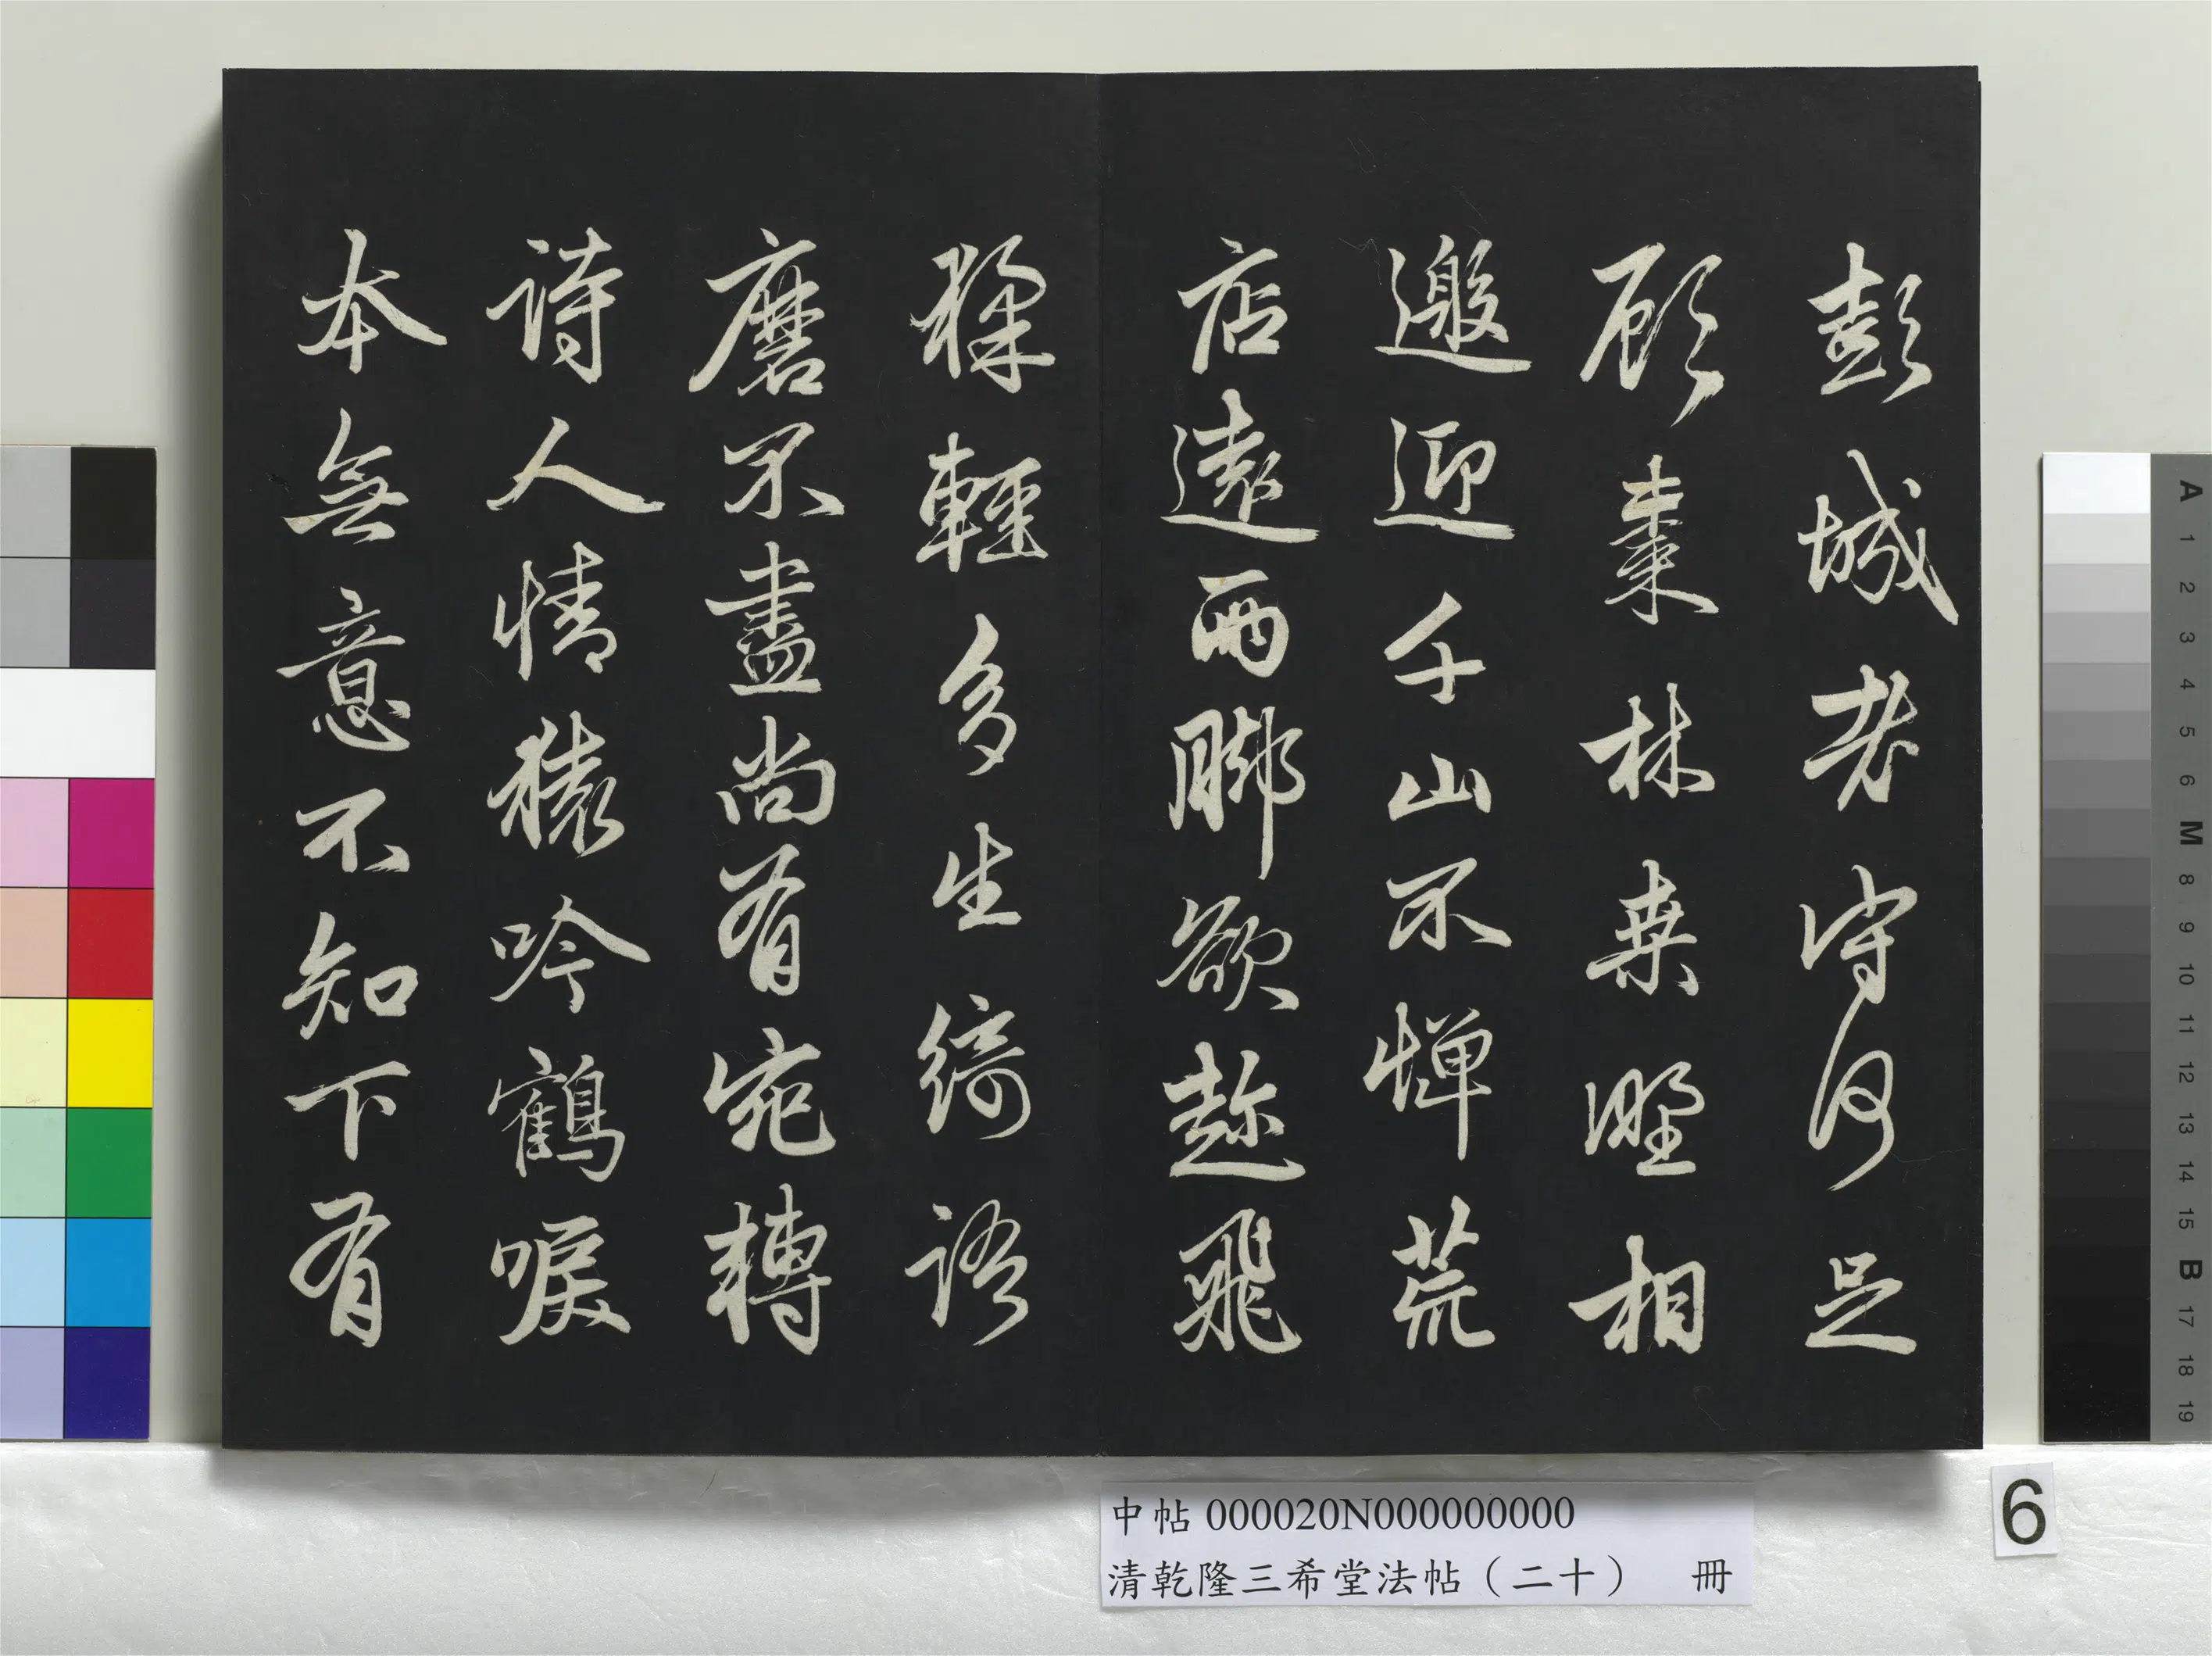 彭城老守何足
顧棗林桒野相
邀迎千山不憚荒
店遠兩脚欲趂飛
猱輕多生綺語
磨不盡尚有宛轉
詩人情猿吟鶴唳
本無意不知下有
中帖 000020N000000000
清乾隆三希堂法帖（二十） 冊
6
A 1 2 3 4 5 6 M 8 9 10 11 12 13 14 15 B 17 18 19